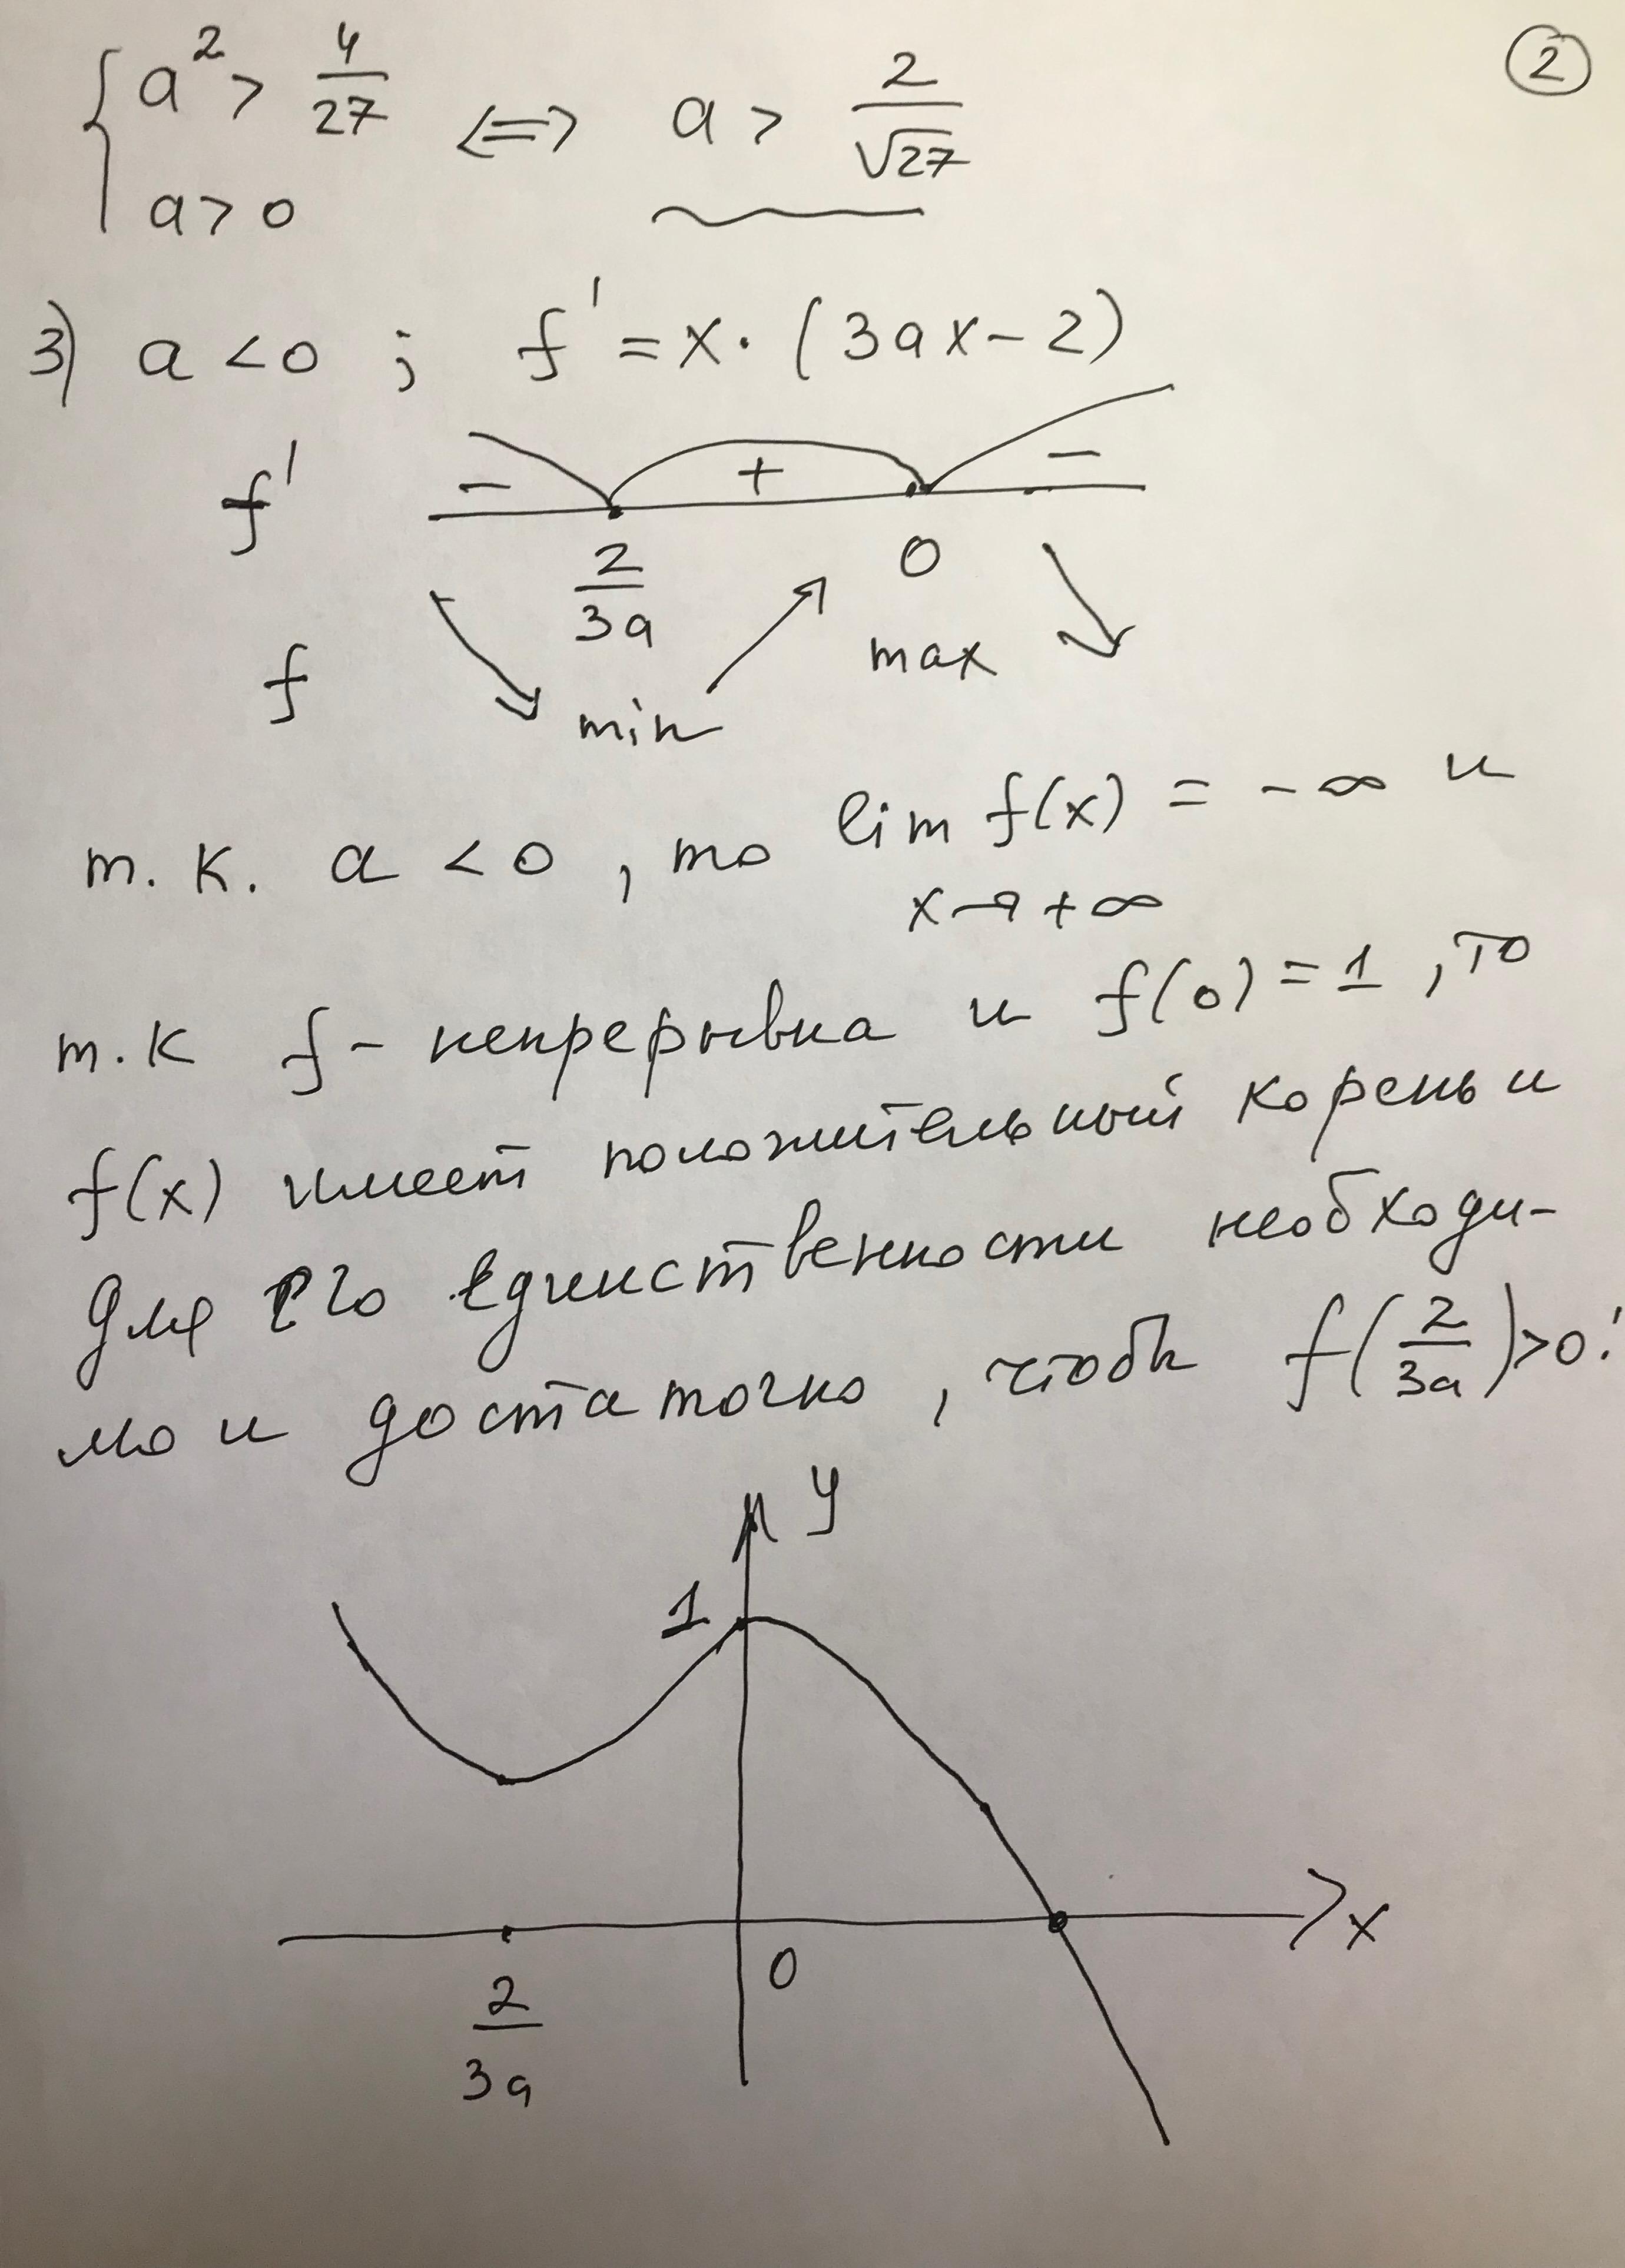 ②
{ a² > 4/27
a > 0 <=> a > 2/√27
3) a < 0 ; f' = x · (3ax - 2)
f' - + -
2/3a 0
f min max
т. к. a < 0 , то lim f(x) = - ∞ и
x → + ∞
т.к f - непрерывна и f(0) = 1 , то
f(x) имеет положительный корень и
для его единственности необходи-
мо и достаточно , чтобы f(2/3a)>0:
y
1
0 x
2/3a